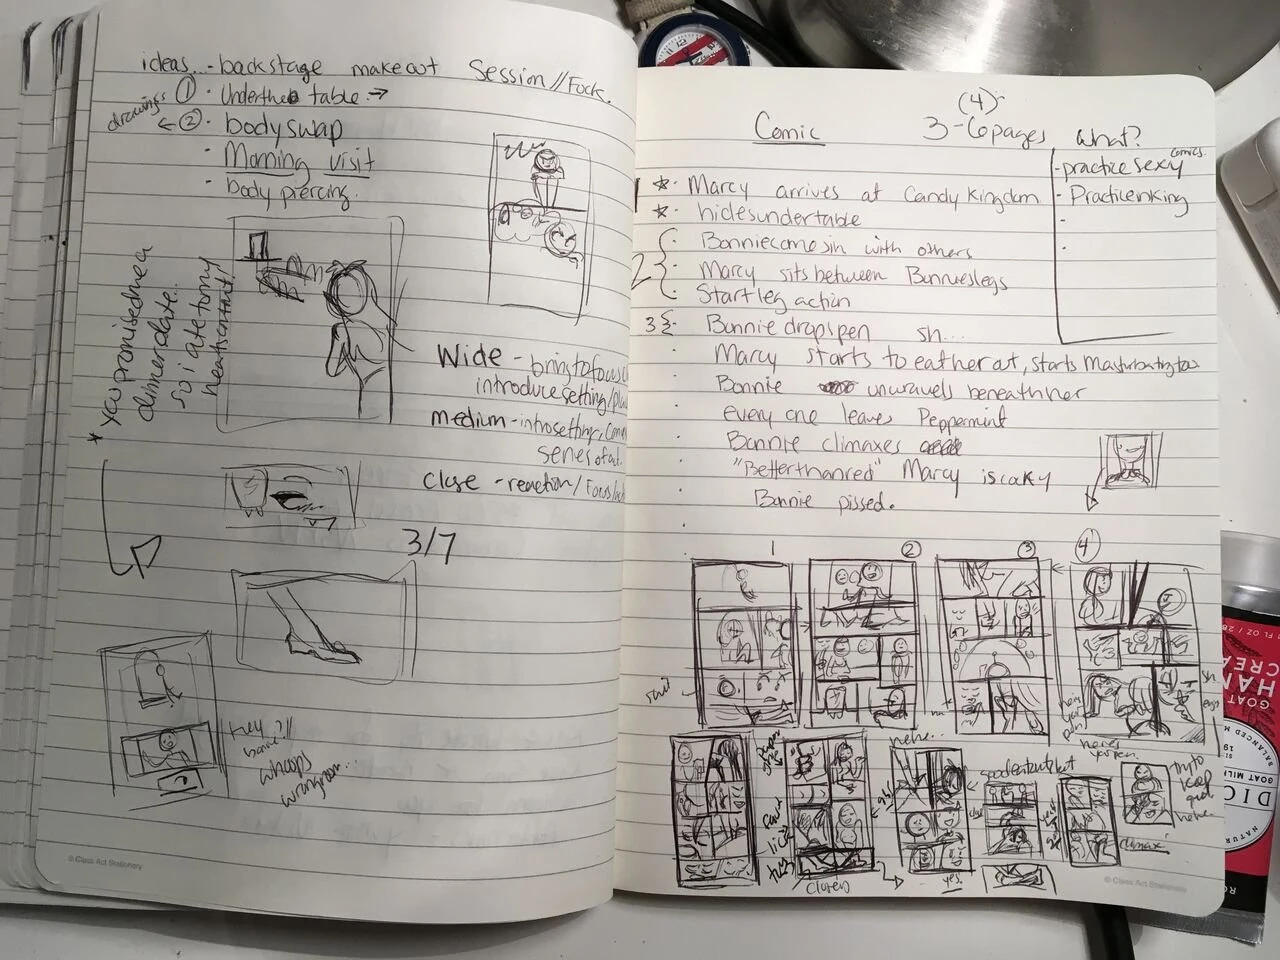 ideas... - backstage makeout Session//Fock.
drawings ① · Underthe table →
← ② · bodyswap
· Morning visit
· body piercing.
* you promised me a
dinner date.
so i ate to my
heart's content!
Wide - bring to focus
introduce setting/
medium - intro setting,
series of
Close - reaction/Focus
3/7
Hey
bonnie?!!
whoops
wrong room...
© Class Act Stationery
(4)
Comic 3-6pages What?
- practice sexy comics.
- Practice inking
1 * · Marcy arrives at Candy Kingdom
* · hides under table
2 { · Bonnie comes in with others
· Marcy sits between Bonnies legs
· Start leg action
3 { · Bonnie drops pen sh...
· Marcy starts to eat her out, starts Masturbating too
· Bonnie unravels beneath her
· every one leaves Peppermint
· Bonnie climaxes
· "Better than red" Marcy is cocky
· Bonnie pissed.
1 ② ③ ④
sh
hehe...
here's
your pen
good
try to
keep
quiet
hehe..
climax
yes.
© Class Act Stationery
GOAT
HAN
CREA
BALANCED
GOAT MILK
DIC
NATUR